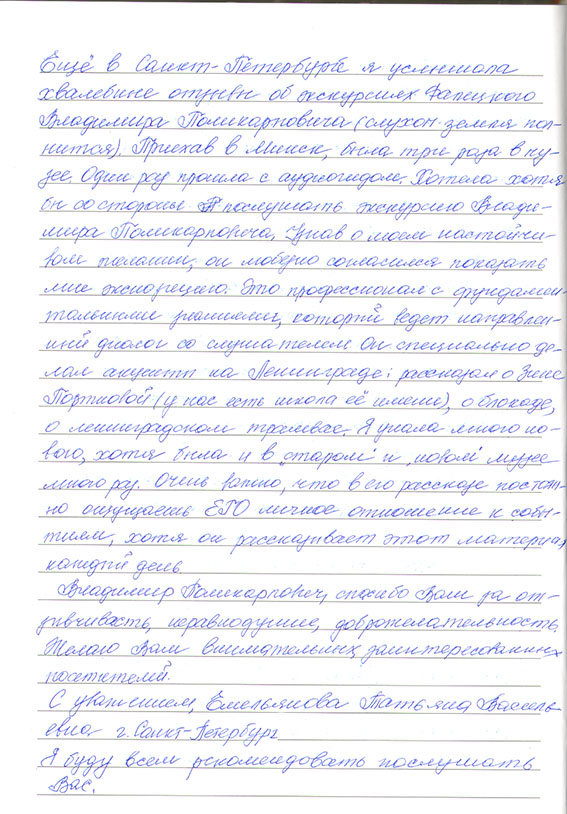 Ещё в Санкт-Петербурге я услышала
хвалебные отзывы об экскурсиях Фапецкого
Владимира Поликарповича (слухом земля пол-
нится). Приехав в Минск, была три раза в му-
зее. Один раз прошла с аудиогидом. Хотела хотя
бы со стороны послушать экскурсию Влади-
мира Поликарповича. Узнав о моем настойчи-
вом желании, он любезно согласился показать
мне экспозицию. Это профессионал с фундамен-
тальными знаниями, который ведет направлен-
ный диалог со слушателем. Он специально де-
лал акценты на Ленинграде: рассказал о Зине
Портновой (у нас есть школа её имени), о блокаде,
о ленинградском трамвае. Я узнала много но-
вого, хотя была и в "старом" и "новом" музее
много раз. Очень важно, что в его рассказе постоян-
но ощущаешь ЕГО личное отношение к собы-
тиям, хотя он рассказывает этот материал
каждый день
Владимир Поликарпович, спасибо Вам за от-
зывчивость, неравнодушие, доброжелательность.
Желаю Вам внимательных, заинтересованных
посетителей.
С уважением, Емельянова Татьяна Василь
евна г. Санкт-Петербург
Я буду всем рекомендовать послушать
Вас.